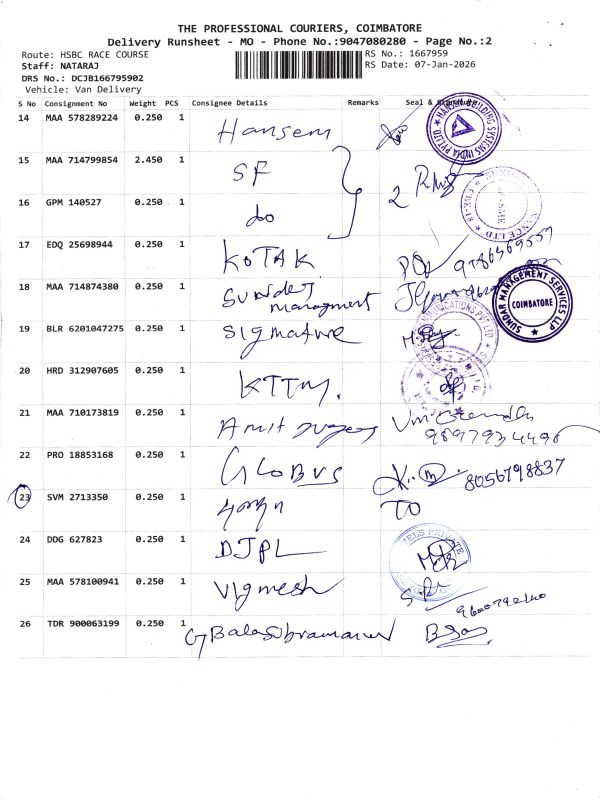 THE PROFESSIONAL COURIERS, COIMBATORE
Delivery Runsheet - MO - Phone No.:9047080280 - Page No.:2
Route: HSBC RACE COURSE RS No.: 1667959
Staff: NATARAJ RS Date: 07-Jan-2026
DRS No.: DCJB166795902
Vehicle: Van Delivery
S No Consignment No Weight PCS Consignee Details Remarks Seal &
14 MAA 578289224 0.250 1 Hansem
15 MAA 714799854 2.450 1 SF
16 GPM 140527 0.250 1 do 2
17 EDQ 25698944 0.250 1 KOTAK
18 MAA 714874380 0.250 1 Sundar Managment
SUNDAR MANAGEMENT SERVICES LLP COIMBATORE
19 BLR 6201047275 0.250 1 Signature
20 HRD 312907605 0.250 1 KTTM.
21 MAA 710173819 0.250 1 Amit
22 PRO 18853168 0.250 1 GLOBUS 8056798837
23 SVM 2713350 0.250 1 TO
24 DDG 627823 0.250 1 DJPL
25 MAA 578100941 0.250 1 Vignesh
26 TDR 900063199 0.250 1 G Balasubramanian